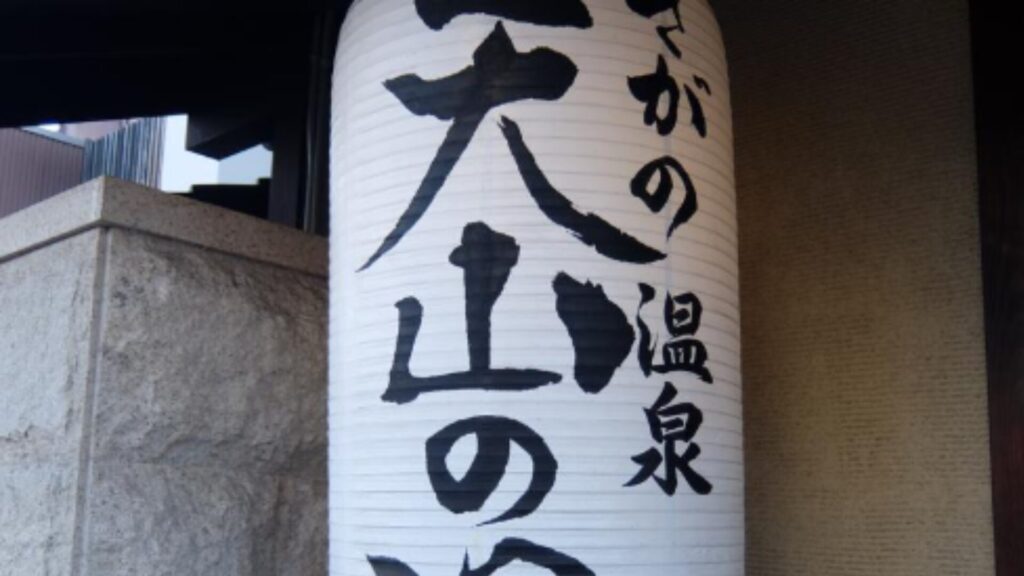 さがの温泉
天山の